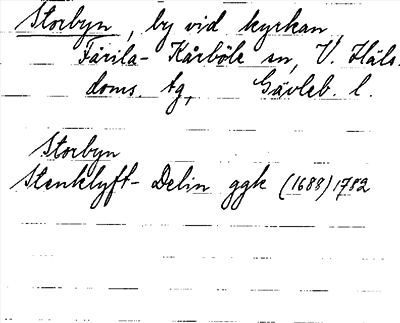 Storbyn, by vid kyrkan,
Färila-Kårböle sn, V. Häls.
doms. tg, Gävleb. l.
Storbyn
Stenklyft-Delin ggk (1688) 1782